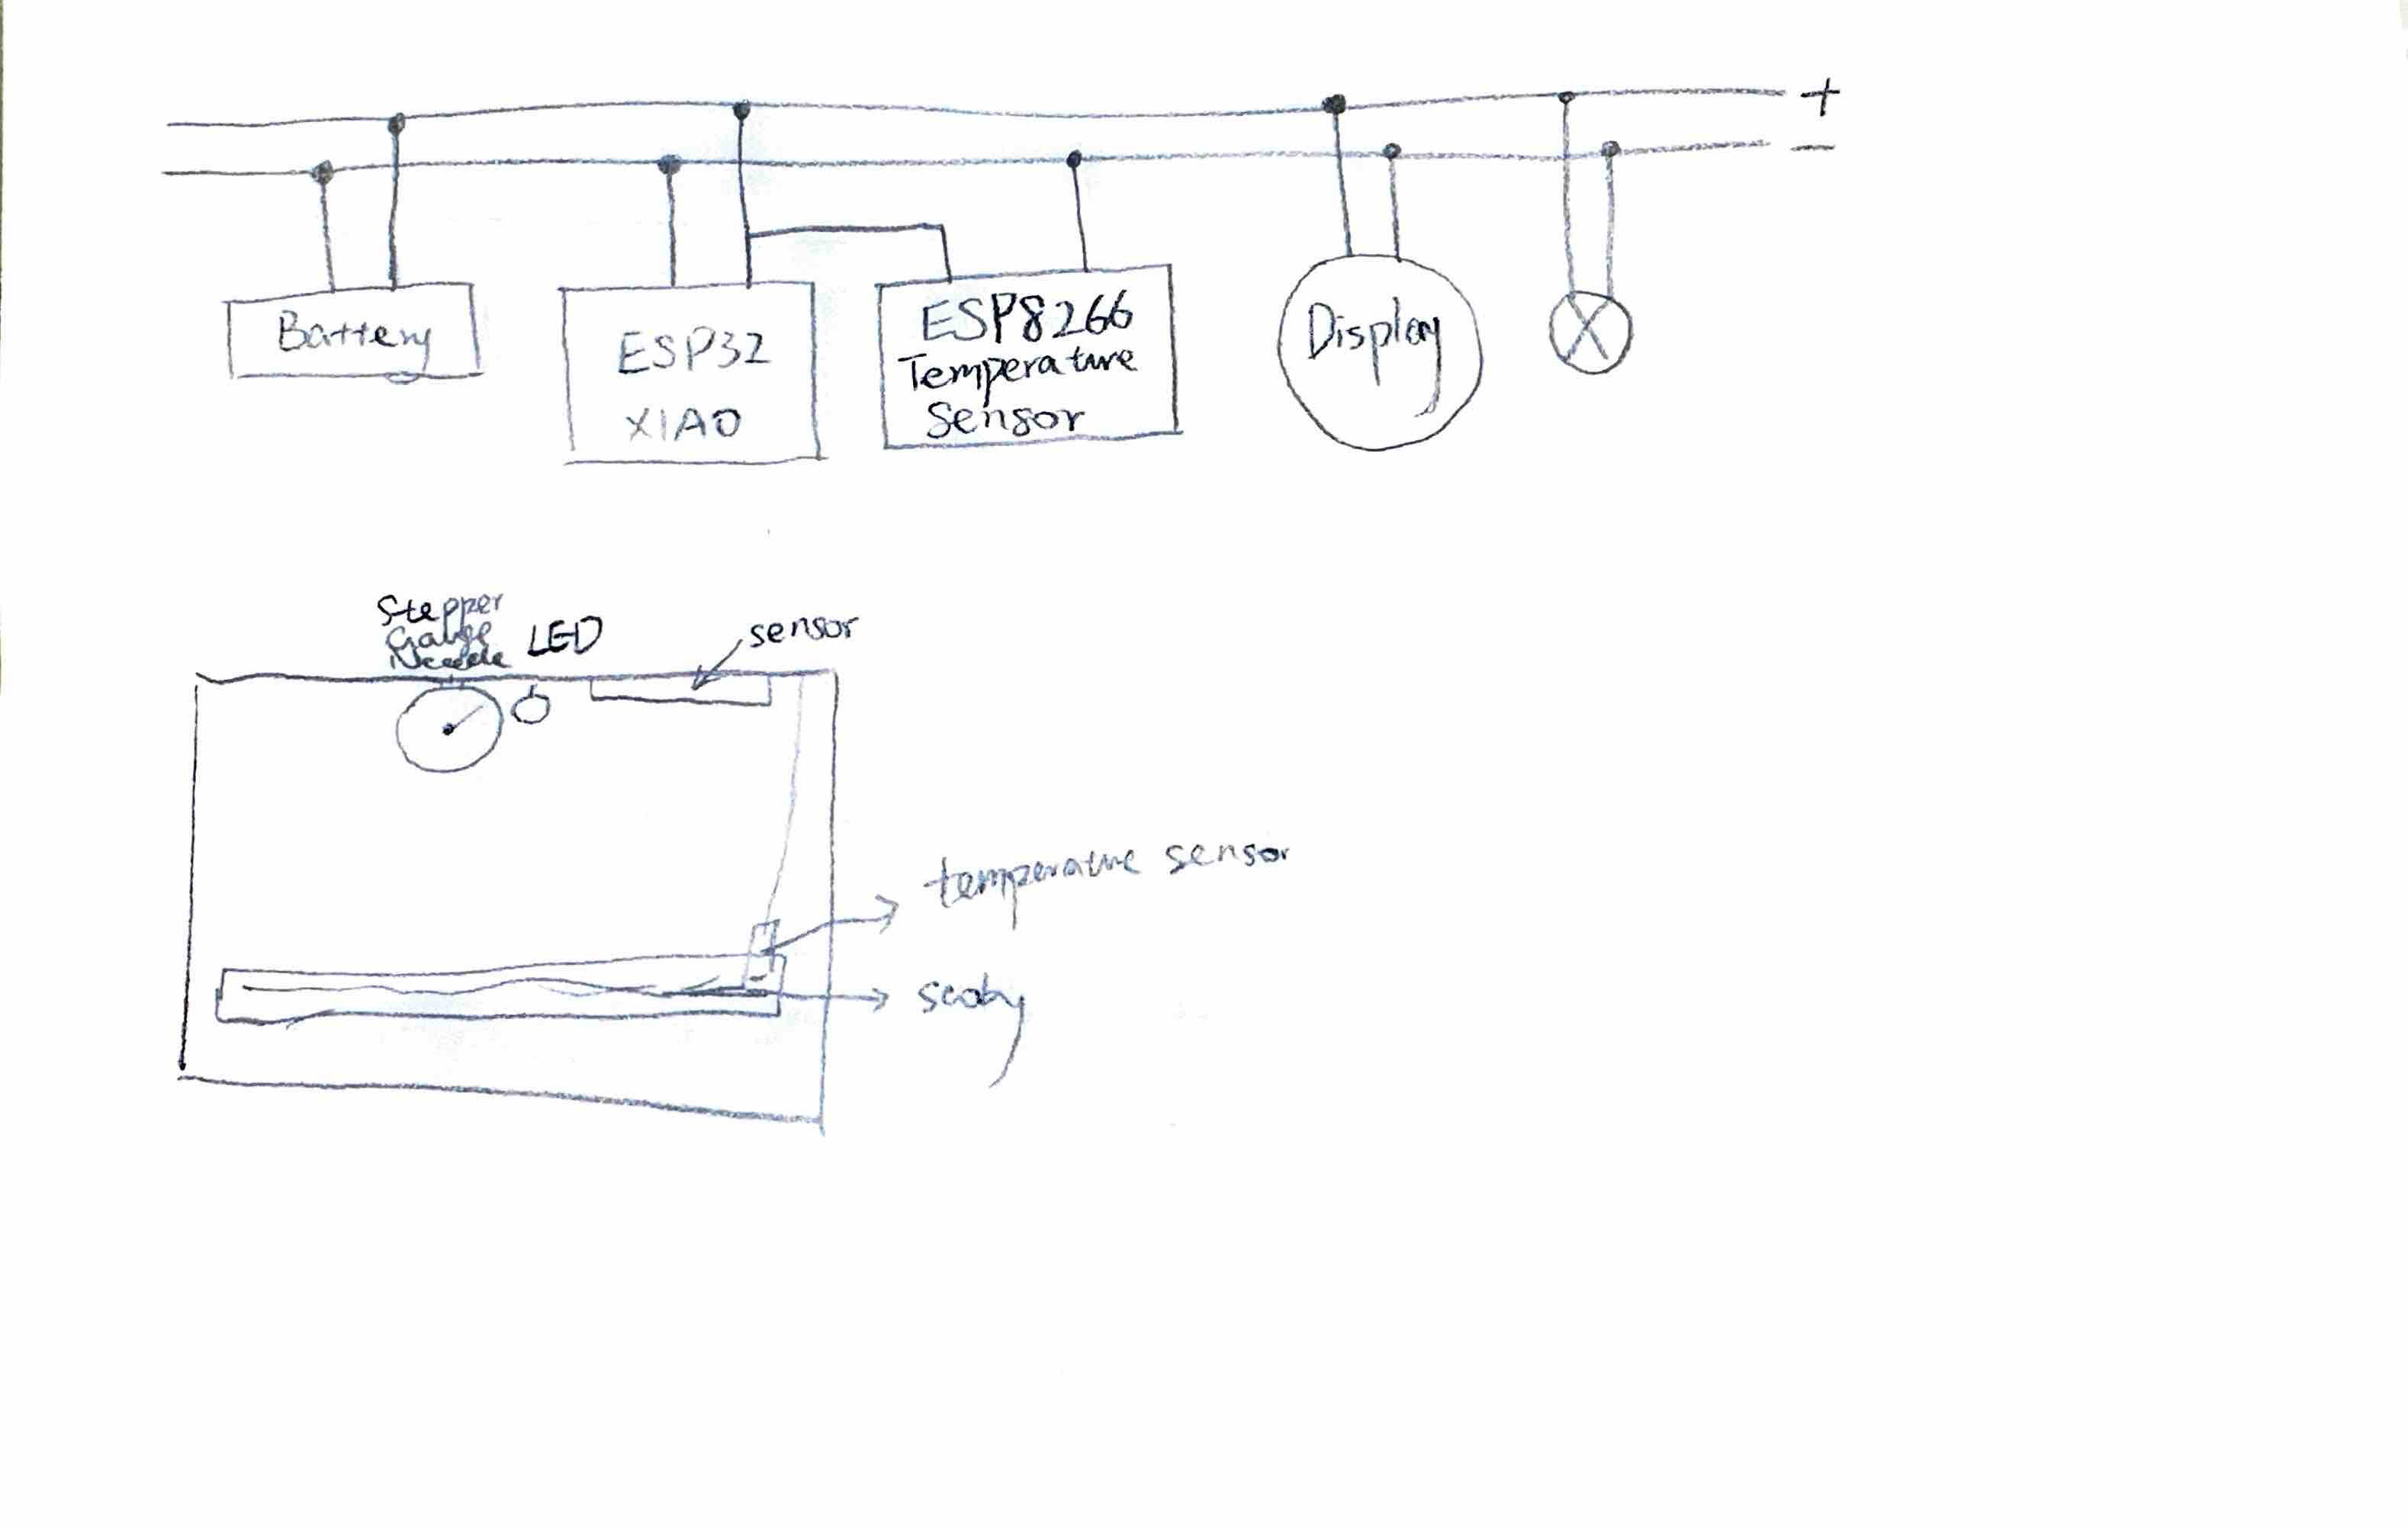 +
−
Battery
ESP32
XIAO
ESP8266
Temperature
Sensor
Display
Stepper
Gauge
Needle
LED
sensor
temperature sensor
scoby